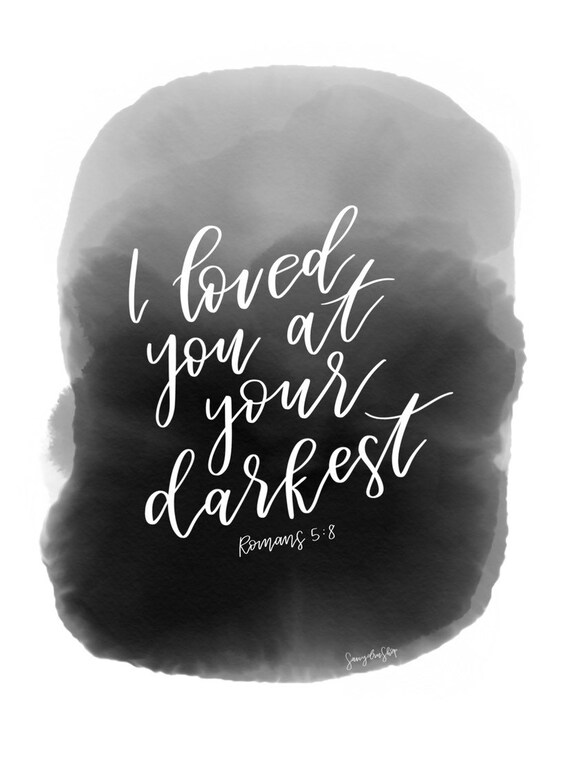 I loved
you at
your
darkest
Romans 5:8